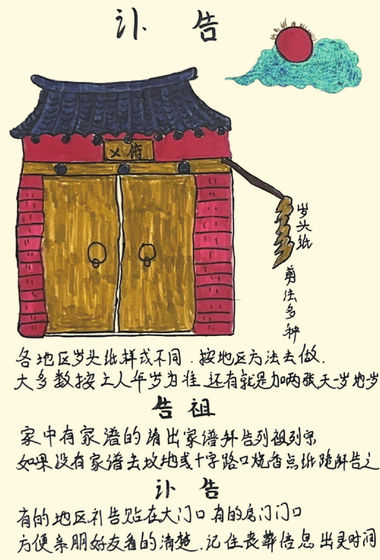 讣 告
乂府
岁头纸
剪法多种
各地区岁头纸样式不同 . 按地区方法去做.
大多数按亡人年岁为准 还有就是加两张天一岁地岁
告祖
家中有家谱的请出家谱斜告列祖列宗
如果没有家谱去坟地或十字路口烧香点纸跪斜告之
讣 告
有的地区讣告贴在大门口 有的房门门口
方便亲朋好友看的清楚. 记住丧葬信息 出灵时间